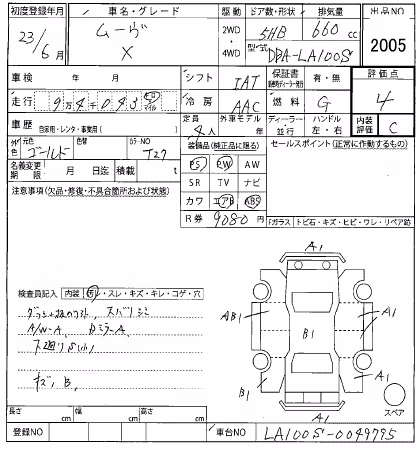 初度登録年月 車名・グレード 駆動 ドア数・形状 排気量 出品NO
23/6月 ムーヴ X 2WD・4WD 5HB 660cc 2005
型式 DBA-LA100S
車検 年 月 シフト IAT 保証書 有・無 評価点
走行 94千043 キロ マイル 冷房 AAC 燃料 G 4
車歴 自家用・レンタ・事業用( ) 定員 4人 外車モデル 年 ディーラー 並行 ハンドル 左・右 内装評価 C
外色 元色 ゴールド 色替 カラーNO T27 装備品(純正品に限る) セールスポイント(正常に動作するもの)
名義変更期限 月 日迄 積載 t PS PW AW
注意事項(欠品・修復・不具合箇所および状態) SR TV ナビ
カワ エアB ABS
R券 9080円 Fガラス トビ石・キズ・ヒビ・ワレ・リペア跡
A1
検査員記入 内装 汚レ・スレ・キズ・キレ・コゲ・穴
AB1 B1 A1
A/W-A DミラーA
下廻りサビ小
キズ、B、
B1 A1
A1 スペア
長さ cm 幅 cm 高さ cm
登録NO 車台NO LA100S-0049795